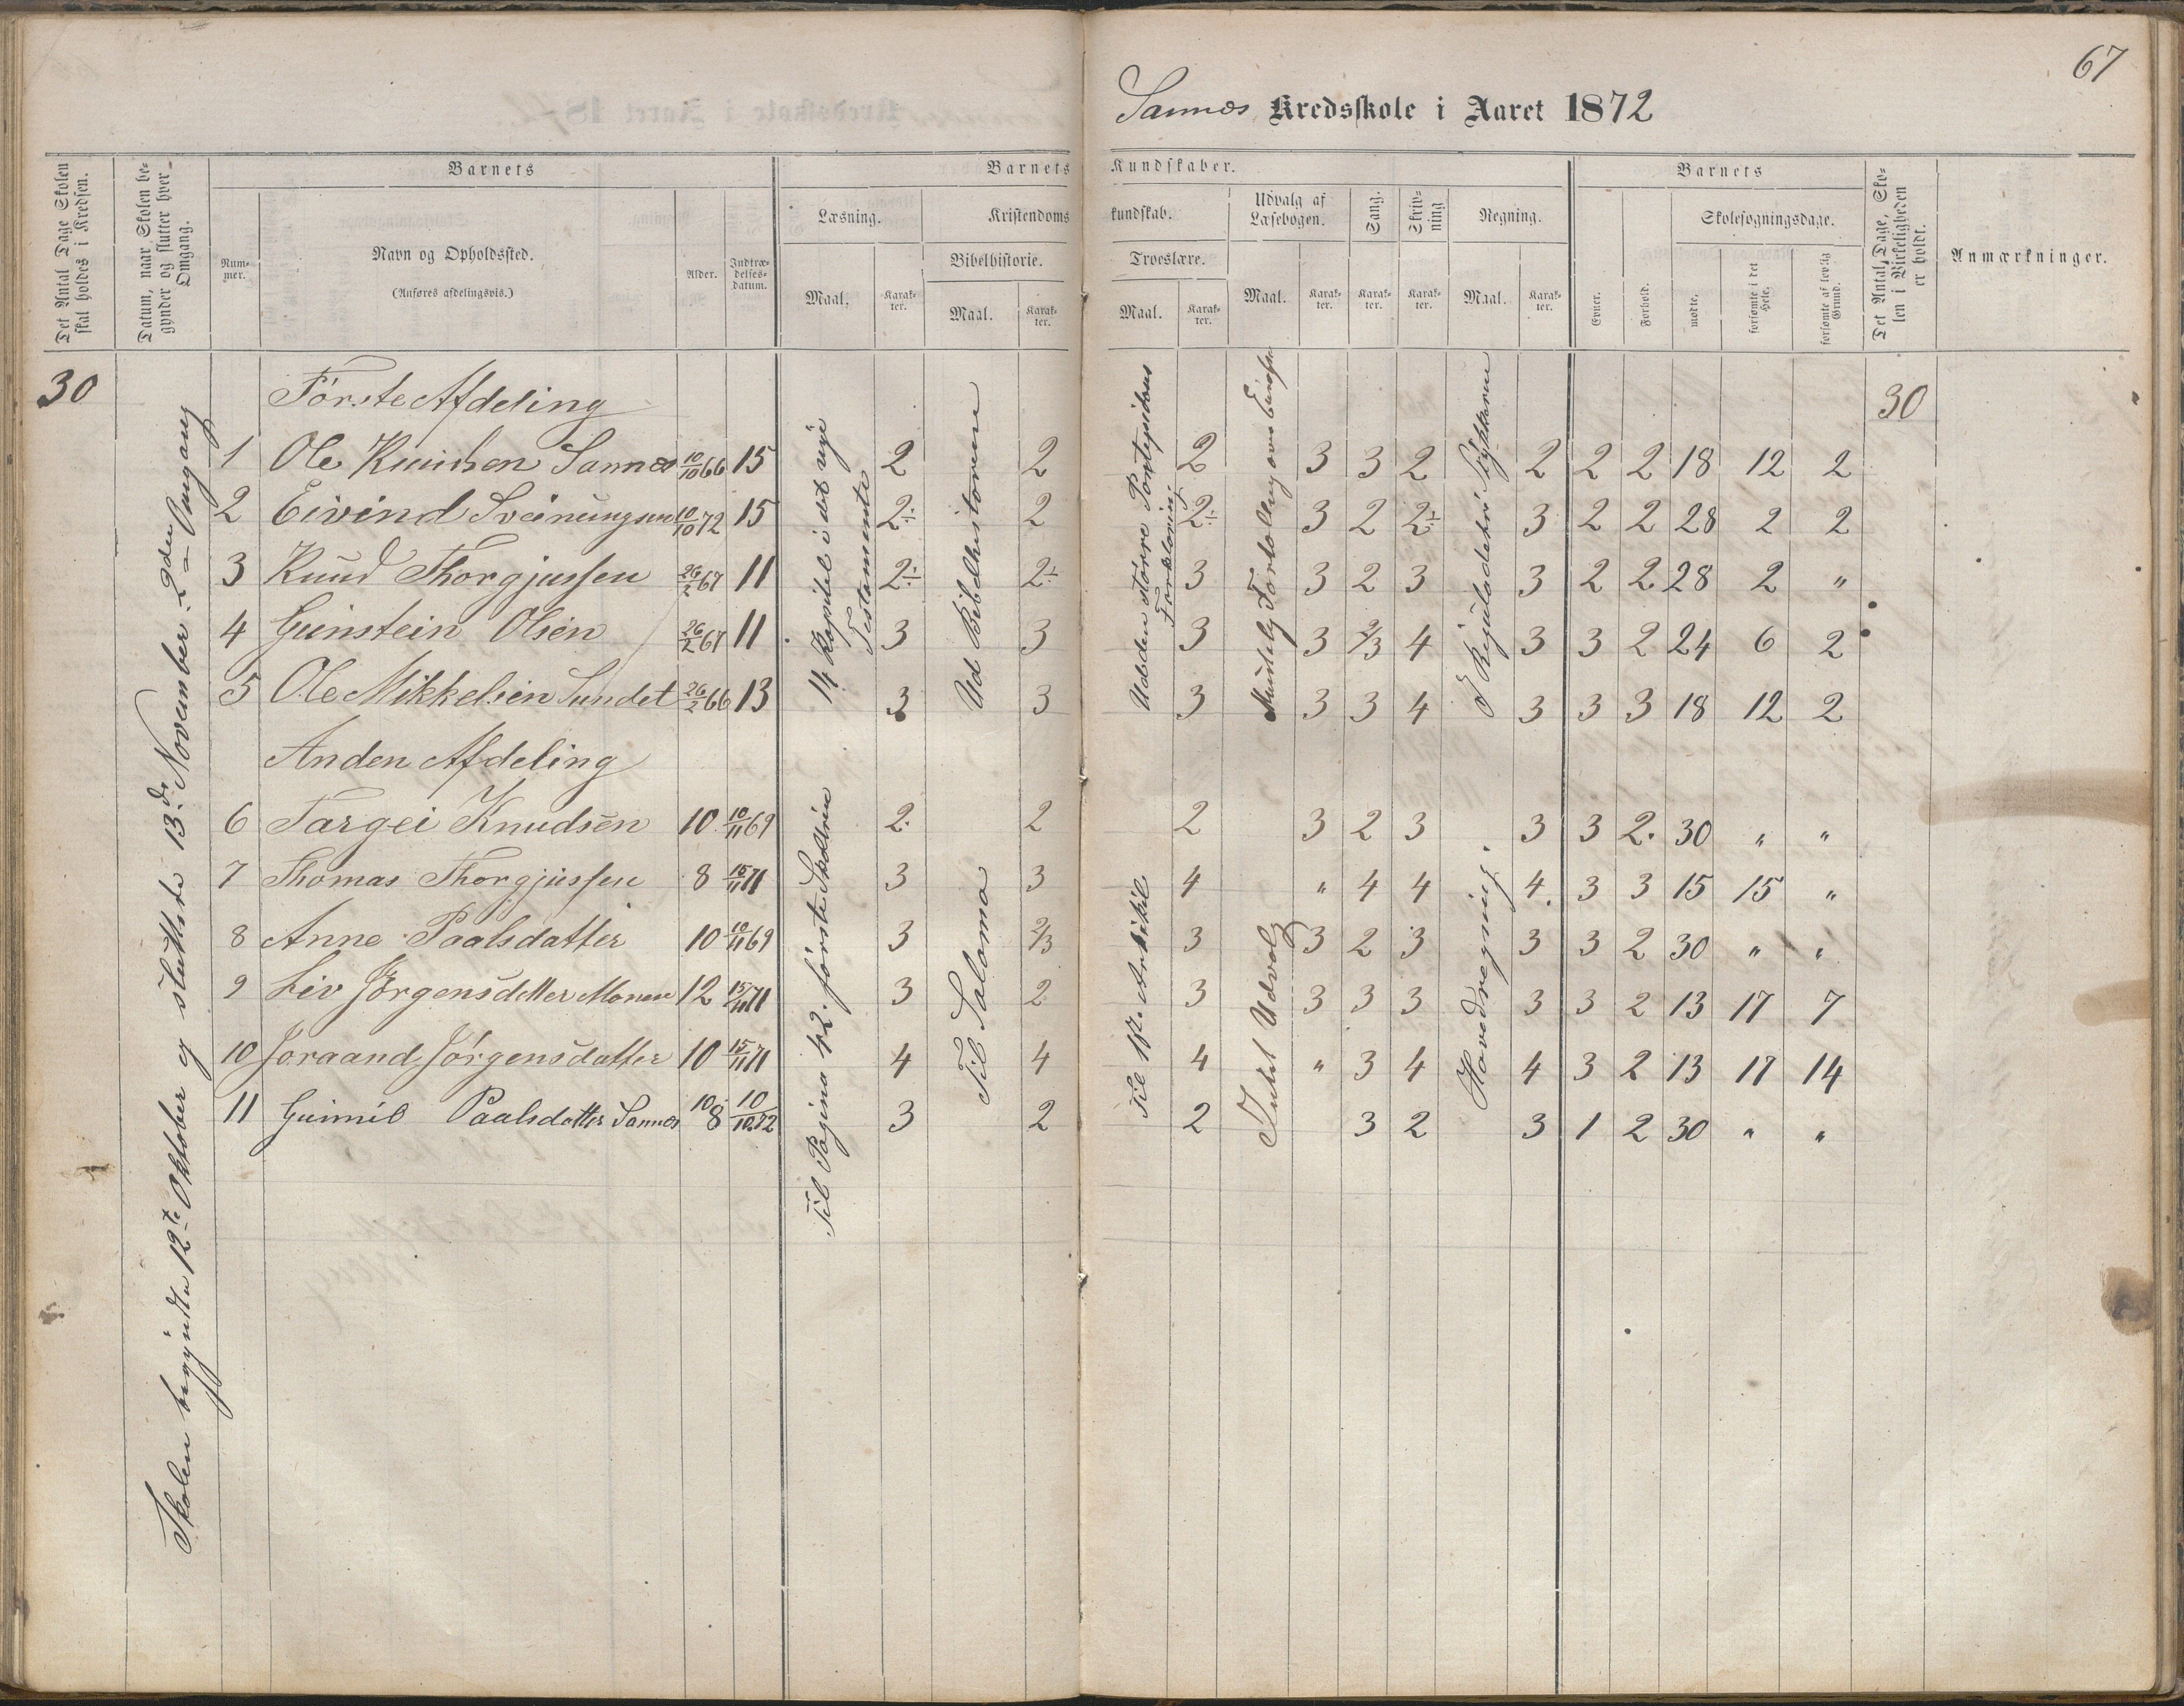 67
Sannes Kredsskole i Aaret 1872
Det Antal Dage Skolen skal holdes i Kredsen.
Datum, naar Skolen begynder og slutter hver Omgang.
Barnets
Nummer.
Navn og Opholdssted.
(Anføres afdelingsvis.)
Alder.
Indtrædelsesdatum.
Barnets Kundskaber.
Læsning.
Maal.
Karakter.
Kristendomskundskab.
Bibelhistorie.
Maal.
Karakter.
Troeslære.
Maal.
Karakter.
Udvalg af Læsebogen.
Maal.
Karakter.
Sang.
Karakter.
Skrivning
Karakter.
Regning.
Maal.
Karakter.
Barnets
Evner.
Forhold.
Skolesøgningsdage.
mødte.
forsømte i det Hele.
forsømte af lovlig Grund.
Det Antal Dage, Skolen i Virkeligheden er holdt.
Anmærkninger.
30
Skolen begyndte 12te Oktober og sluttede 13de November 2den Omgang
Første Afdeling
30
1 Ole Knudsen Sannes 10/10 66 15 2 2 2 3 3 2 2 2 2 18 12 2
2 Eivind Sveinungsen 10/10 72 15 2÷ 2 2÷ 3 2 2÷ 3 2 2 28 2 2
3 Knud Thorgjussen 26/2 67 11 2÷ 2÷ 3 3 2 3 3 2 2 28 2 "
4 Gunstein Olsen 26/2 67 11 3 3 3 3 2/3 4 3 3 2 24 6 2
5 Ole Mikkelsen Sundet 26/2 66 13 3 3 3 3 3 4 3 3 3 18 12 2
14 Kapitel i det nye Testamente
Ud Bibelhistorien
Udden større Pontopidans Forklaring.
I Reguladetri Stykkerne
Anden Afdeling
6 Targei Knudsen 10 10/11 69 2. 2 2 3 2 3 3 3 2. 30 " "
7 Thomas Thorgjussen 8 15/11 71 3 3 4 " 4 4 4. 3 3 15 15 "
8 Anne Paalsdatter 10 10/11 69 3 2/3 3 3 2 3 3 3 2 30 " "
9 Liv Jørgensdatter Monen 12 15/11 71 3 2 3 3 3 3 3 3 2 13 17 7
10 Joraand Jørgensdatter 10 15/11 71 4 4 4 " 3 4 4 3 2 13 17 14
11 Gunnil Paalsdatter Sannes 10 8 10/10.72 3 2 2 3 2 3 1 2 30 " "
Til Pagina 42. første Skoltrin
Til Saloma
Til 17. Artikel
Intet Udvalg
Hovedregning.